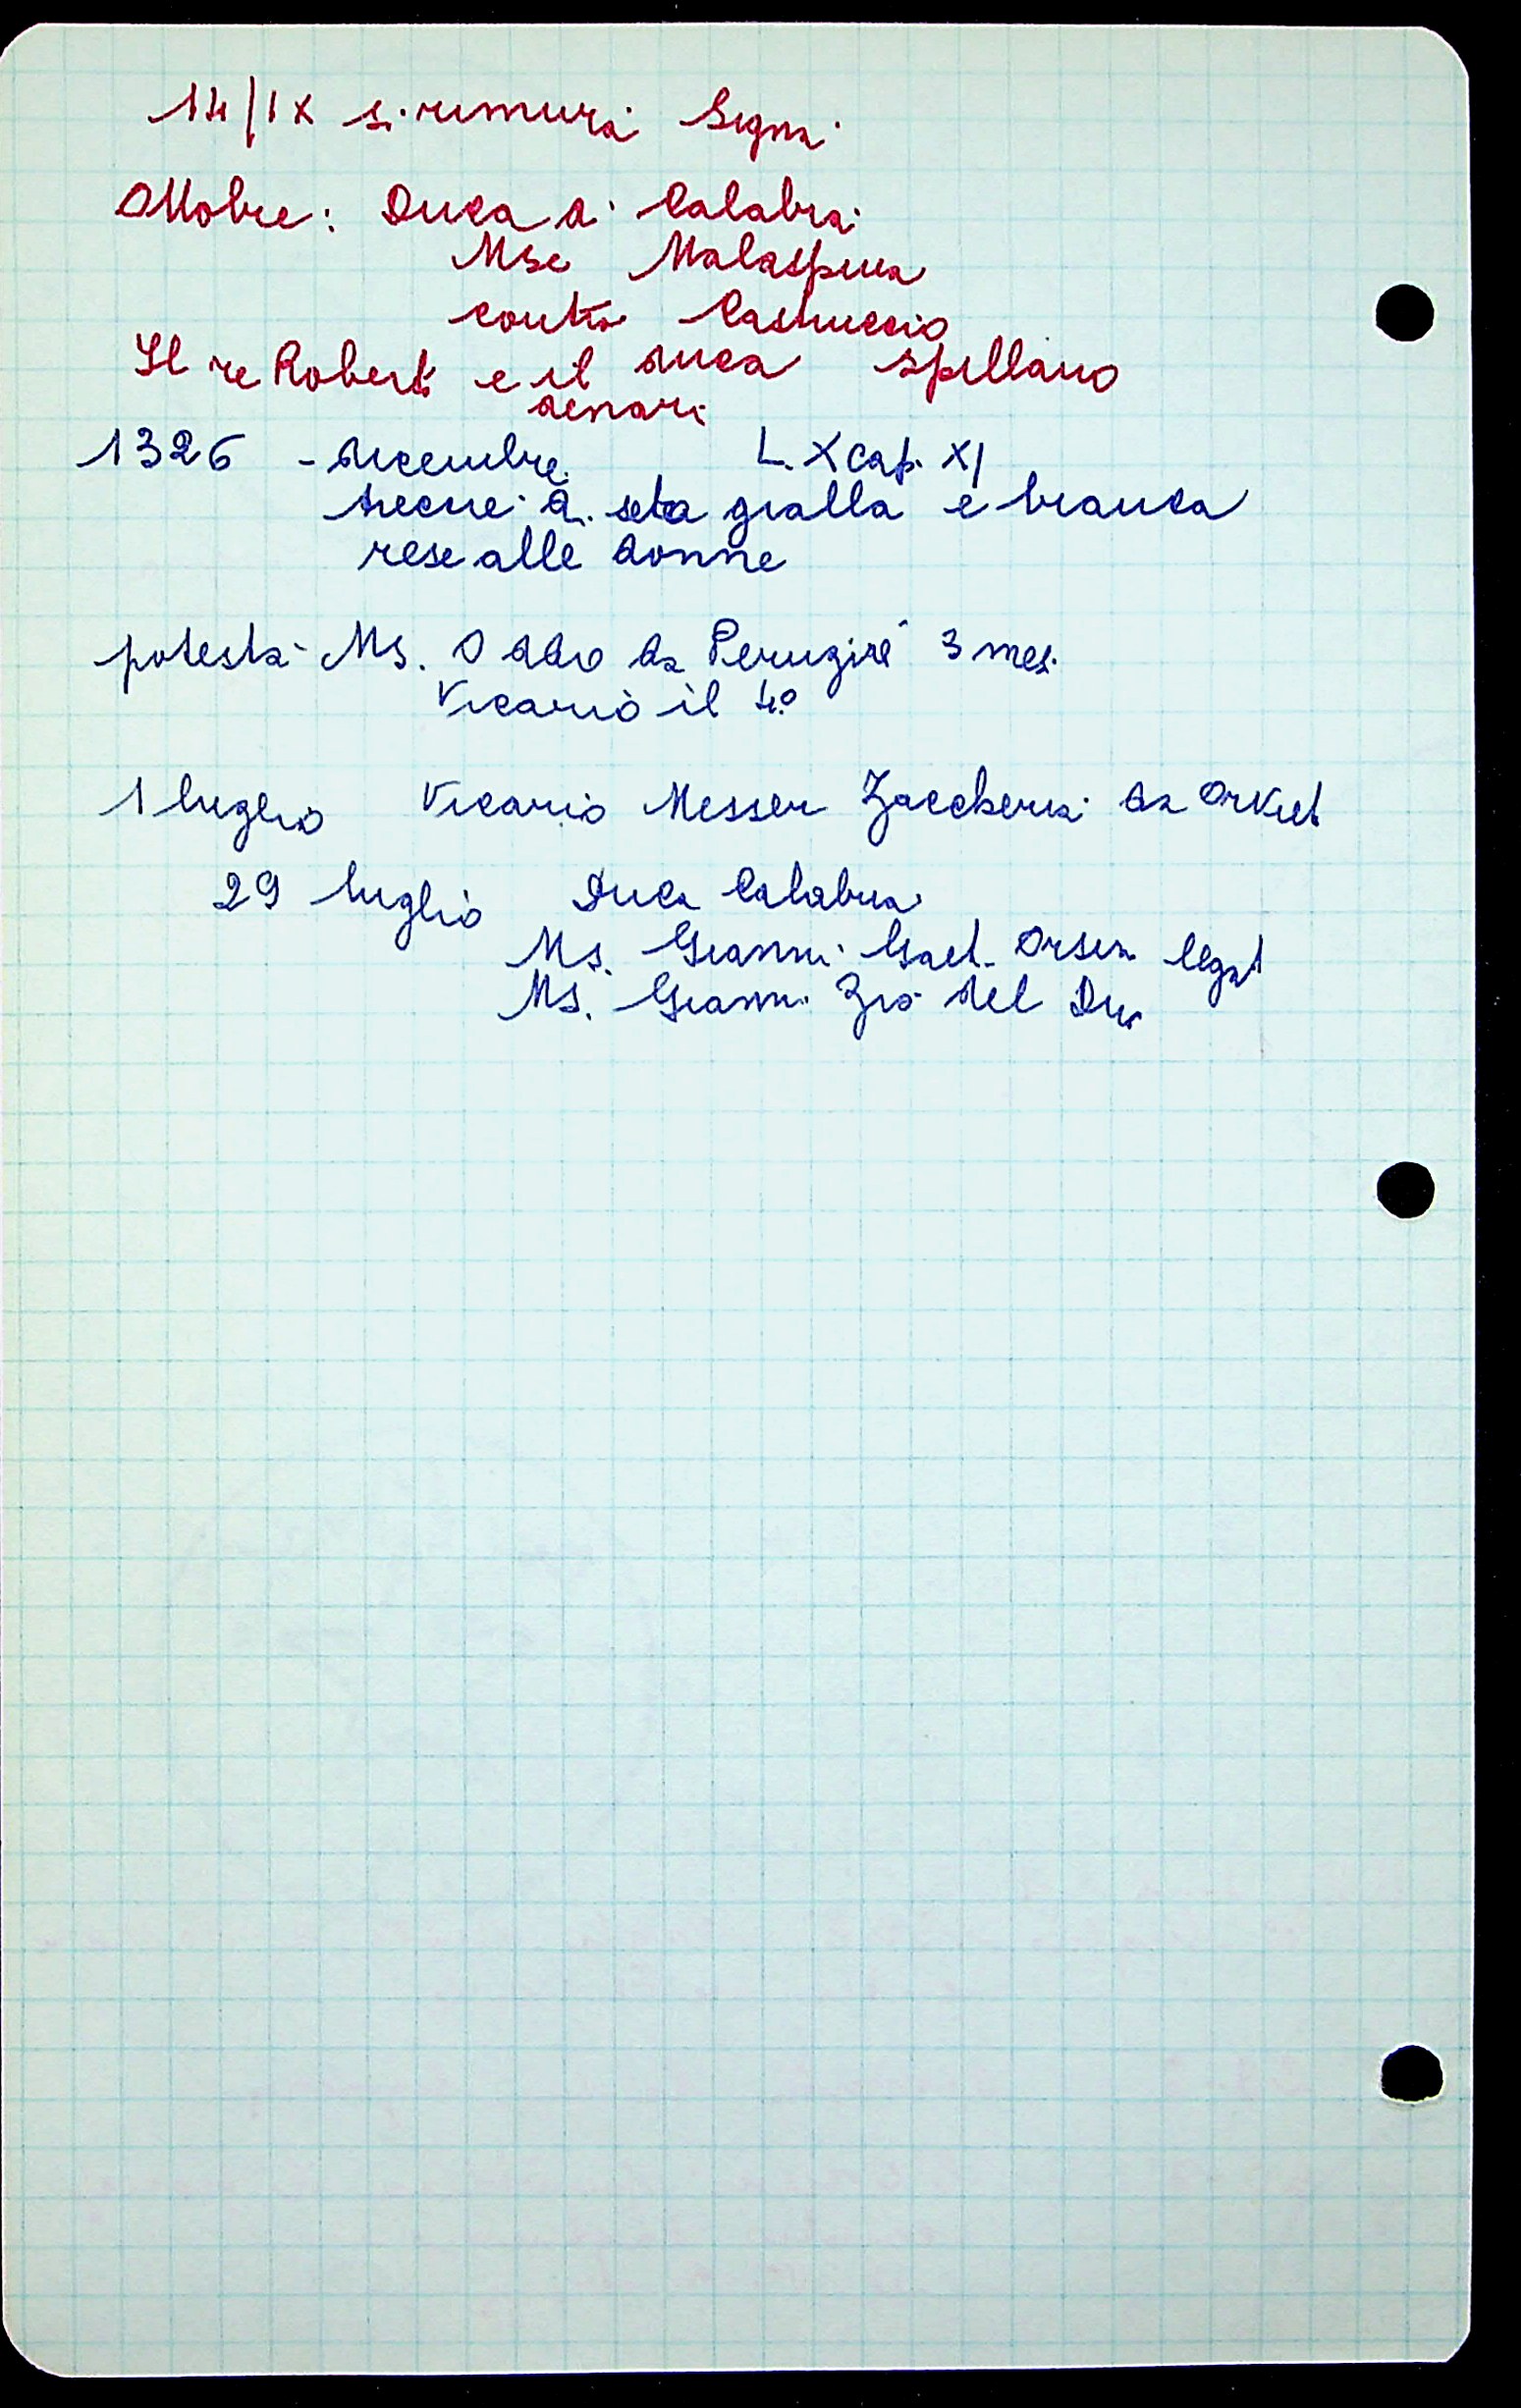 14/IX si rimura Signa
Ottobre: Duca di Calabria
Mse Malaspina
contro Castruccio
Il re Roberto e il duca spillano
denari
1326 - dicembre L. X cap. XI
trecce di seta gialla e bianca
rese alle donne
potestà Ms. Oddo da Perugia 3 mesi
Vicario il 4º
1 luglio Vicario Messer Zaccheria da Orviet
29 luglio Duca Calabria
Ms. Gianni Gaet. Orsin legat
Ms. Gianni Zio del Du